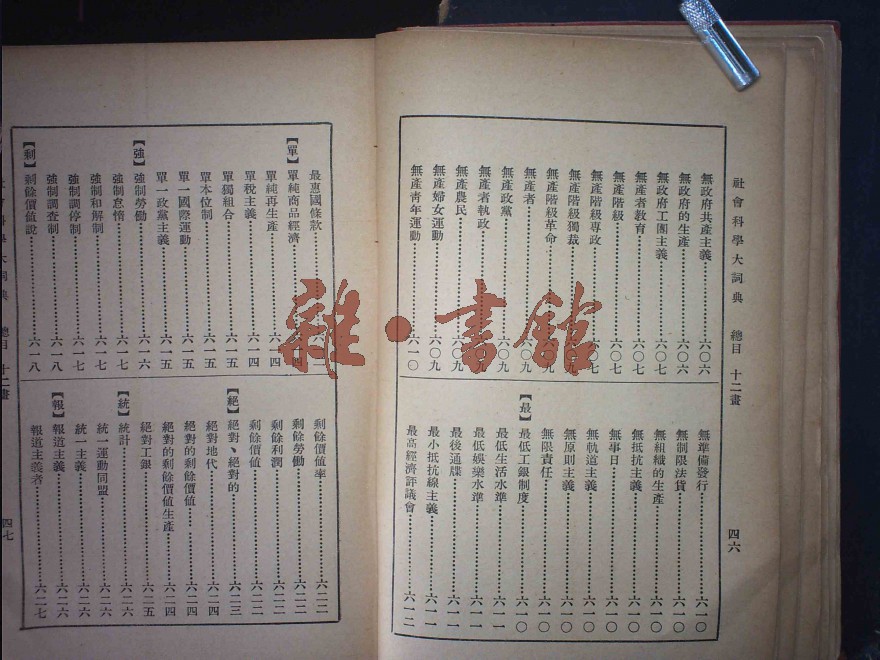 社會科學大詞典 總目 十二畫 四六
無政府共產主義……六〇六
無政府的生產……六〇六
無政府工團主義……六〇七
無產者教育……六〇七
無產階級……六〇七
無產階級專政……六〇七
無產階級獨裁……九
無產階級革命……九
無產者……〇九
無產政黨……〇九
無產者執政……九
無產農民……六〇九
無產婦女運動……六〇九
無產靑年運動……六一〇
無準備發行……六一〇
無制限法貨……六一〇
無組織的生產……六一〇
無抵抗主義……六一〇
無事日……六一〇
無軌道主義……六一〇
無原則主義……六一〇
無限責任……六一〇
【最】最低工銀制度……六一〇
最低生活水準……六一一
最低娛樂水準……六一一
最後通牒……六一一
最小抵抗線主義……六一一
最高經濟評議會……六一二
最惠國條款
【單】單純商品經濟
單純再生產……四
單稅主義……六一四
單獨組合……六一五
單本位制……六一五
單一國際運動……六一五
單一政黨主義……六一五
【強】強制勞働……六一六
強制怠惰……六一七
強制和解制……六一七
強制調停制……六一七
強制調查制……六一八
【剩】剩餘價值說……六一八
剩餘價值率……六二二
剩餘勞働……六二二
剩餘利潤……六二二
剩餘價值……六二二
【絕】絕對、絕對的……六二三
絕對地代……六二四
絕對的剩餘價值……六二四
絕對的剩餘價值生產……六二四
絕對工銀……六二五
【統】統計……六二六
統一運動同盟……六二六
統一主義……六二六
【報】報道主義……六二六
報道主義者……六二七
社會科學大詞典 總目 十二畫 四七
雜·書館